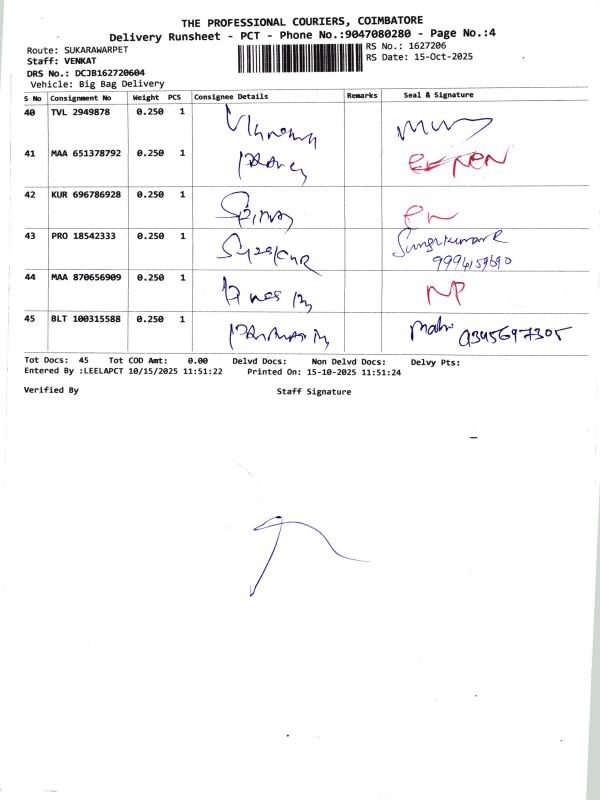 THE PROFESSIONAL COURIERS, COIMBATORE
Delivery Runsheet - PCT - Phone No.:9047080280 - Page No.:4
Route: SUKARAWARPET
RS No.: 1627206
Staff: VENKAT
RS Date: 15-Oct-2025
DRS No.: DCJB162720604
Vehicle: Big Bag Delivery
S No Consignment No Weight PCS Consignee Details Remarks Seal & Signature
40 TVL 2949878 0.250 1
41 MAA 651378792 0.250 1
42 KUR 696786928 0.250 1
43 PRO 18542333 0.250 1
44 MAA 870656909 0.250 1 NP
45 BLT 100315588 0.250 1 9345697305
Tot Docs: 45 Tot COD Amt: 0.00 Delvd Docs: Non Delvd Docs: Delvy Pts:
Entered By :LEELAPCT 10/15/2025 11:51:22 Printed On: 15-10-2025 11:51:24
Verified By Staff Signature